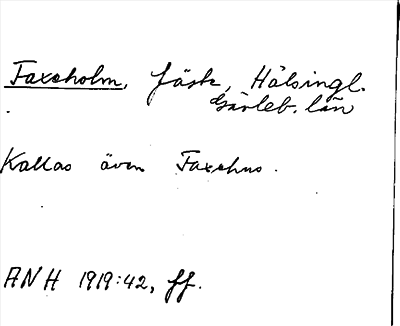 Faxeholm, fäste, Hälsingl.
Gävleb. län
Kallas även Faxehus.
ANH 1919:42, ff.